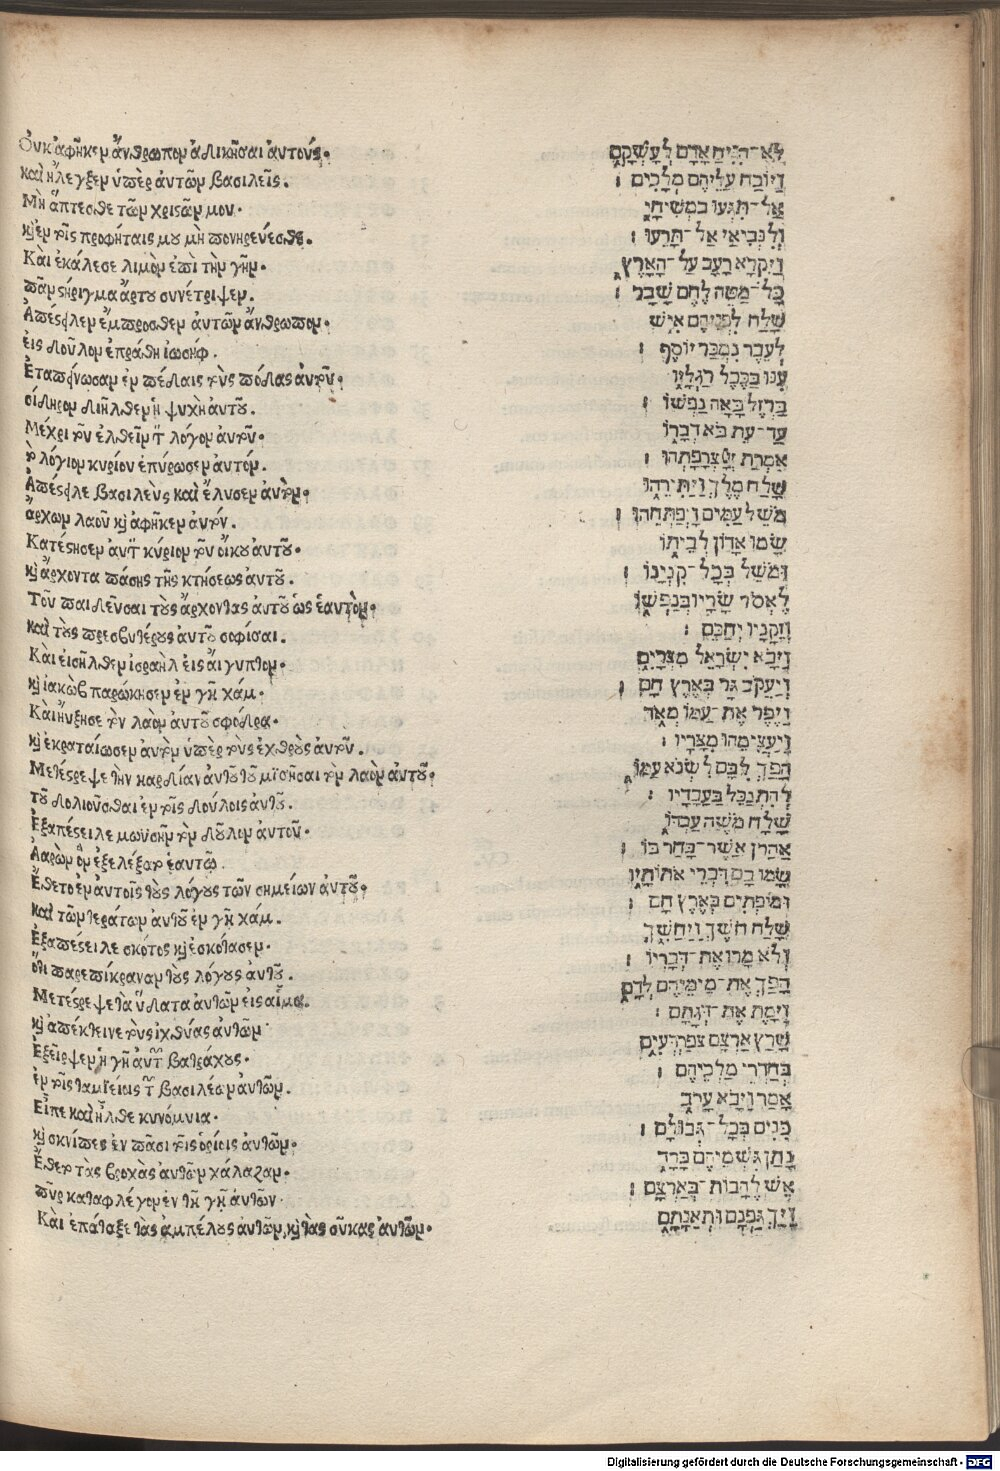 Ὀυκ ἀφῆκεν ἄνθρωπον ἀδικῆσαι ἀυτούς·
καὶ ἤλεγξεν ὑπὲρ ἀυτῶν βασιλεῖς.
Μὴ ἅπτεσθε τῶν χριστῶν μου·
κỳ ἐν τοῖς προφήταις μου μὴ πονηρεύεσθε.
Καὶ ἐκάλεσε λιμὸν ἐπὶ τὴν γῆν·
πᾶν στήριγμα ἄρτου συνέτριψεν.
Ἀπέστειλεν ἔμπροσθεν ἀυτῶν ἄνθρωπον·
εἰς δοῦλον ἐπράθη ἰωσήφ.
Ἐταπείνωσαν ἐν πέδαις τοὺς πόδας ἀυτοῦ·
σίδηρον διῆλθεν ἡ ψυχὴ ἀυτοῦ.
Μέχρι τοῦ ἐλθεῖν τὸν λόγον ἀυτοῦ·
τὸ λόγιον κυρίου ἐπύρωσεν ἀυτόν.
Ἀπέστειλε βασιλεὺς καὶ ἔλυσεν ἀυτὸν·
ἄρχων λαοῦ καὶ ἀφῆκεν ἀυτόν.
Κατέστησεν ἀυτὸν κύριον τοῦ οἴκου ἀυτοῦ·
καὶ ἄρχοντα πάσης τῆς κτήσεως ἀυτοῦ.
Τοῦ παιδεῦσαι τοὺς ἄρχοντας ἀυτοῦ ὡς ἑαυτὸν·
καὶ τοὺς πρεσβυτέρους ἀυτοῦ σοφίσαι.
Καὶ εἰσῆλθεν ἰσραὴλ εἰς ἄιγυπτον·
καὶ ἰακὼβ παρώκησεν ἐν γῇ χάμ.
Καὶ ηὔξησε τὸν λαὸν ἀυτοῦ σφόδρα·
καὶ ἐκραταίωσεν ἀυτὸν ὑπὲρ τοὺς ἐχθροὺς ἀυτοῦ.
Μετέστρεψε τὴν καρδίαν ἀυτοῦ τοῦ μισῆσαι τὸν λαὸν ἀυτοῦ·
τοῦ δολιοῦσθαι ἐν τοῖς δούλοις ἀυτοῦ.
Ἐξαπέστειλε μωϋσῆν τὸν δοῦλον ἀυτοῦ·
Ἀαρὼν ὃν ἐξελέξατο ἑαυτῷ.
Ἔθετο ἐν ἀυτοῖς τοὺς λόγους τῶν σημείων ἀυτοῦ·
καὶ τῶν τεράτων ἀυτοῦ ἐν γῇ χάμ.
Ἐξαπέστειλε σκότος καὶ ἐσκότασεν·
ὅτι παρεπίκραναν τοὺς λόγους ἀυτοῦ.
Μετέστρεψε τὰ ὕδατα ἀυτῶν εἰς αἷμα.
καὶ ἀπέκτεινε τοὺς ἰχθύας ἀυτῶν·
Ἐξεῖρψεν ἡ γῆ ἀυτῶν βατράχους·
ἐν τοῖς ταμιείοις τῶν βασιλέων ἀυτῶν.
Εἶπε καὶ ἦλθε κυνόμυια·
καὶ σκνῖπες ἐν πᾶσι τοῖς ὁρίοις ἀυτῶν·
Ἔθετο τὰς βροχὰς ἀυτῶν χάλαζαν·
πῦρ καταφλέγον ἐν τῇ γῇ ἀυτῶν·
Καὶ ἐπάταξε τὰς ἀμπέλους ἀυτῶν, καὶ τὰς συκᾶς ἀυτῶν·
לֹא־הִנִּיחַ אָדָם לְעָשְׁקָם
וַיּוֹכַח עֲלֵיהֶם מְלָכִים ׃
אַל־תִּגְּעוּ בִמְשִׁיחָי
וְלִנְבִיאַי אַל־תָּרֵעוּ ׃
וַיִּקְרָא רָעָב עַל־הָאָרֶץ
כָּל־מַטֵּה לֶחֶם שָׁבָר ׃
שָׁלַח לִפְנֵיהֶם אִישׁ
לְעֶבֶד נִמְכַּר יוֹסֵף ׃
עִנּוּ בַכֶּבֶל רַגְלָיו
בַּרְזֶל בָּאָה נַפְשׁוֹ ׃
עַד־עֵת בֹּא דְבָרוֹ
אִמְרַת יְיָ צְרָפָתְהוּ ׃
שָׁלַח מֶלֶךְ וַיַּתִּירֵהוּ
מֹשֵׁל עַמִּים וַיְפַתְּחֵהוּ ׃
שָׂמוֹ אָדוֹן לְבֵיתוֹ
וּמֹשֵׁל בְּכָל־קִנְיָנוֹ ׃
לֶאְסֹר שָׂרָיו בְּנַפְשׁוֹ
וּזְקֵנָיו יְחַכֵּם ׃
וַיָּבֹא יִשְׂרָאֵל מִצְרָיִם
וְיַעֲקֹב גָּר בְּאֶרֶץ חָם ׃
וַיֶּפֶר אֶת־עַמּוֹ מְאֹד
וַיַּעֲצִימֵהוּ מִצָּרָיו ׃
הָפַךְ לִבָּם לִשְׂנֹא עַמּוֹ
לְהִתְנַכֵּל בַּעֲבָדָיו ׃
שָׁלַח מֹשֶׁה עַבְדּוֹ
אַהֲרֹן אֲשֶׁר־בָּחַר בּוֹ ׃
שָׂמוּ בָם דִּבְרֵי אֹתוֹתָיו
וּמֹפְתִים בְּאֶרֶץ חָם ׃
שָׁלַח חֹשֶׁךְ וַיַּחְשִׁךְ
וְלֹא מָרוּ אֶת־דְּבָרָיו ׃
הָפַךְ אֶת־מֵימֵיהֶם לְדָם
וַיָּמֶת אֶת־דְּגָתָם ׃
שָׁרַץ אַרְצָם צְפַרְדְּעִים
בְּחַדְרֵי מַלְכֵיהֶם ׃
אָמַר וַיָּבֹא עָרֹב
כִּנִּים בְּכָל־גְּבוּלָם ׃
נָתַן גִּשְׁמֵיהֶם בָּרָד
אֵשׁ לֶהָבוֹת־בְּאַרְצָם ׃
וַיַּךְ גַּפְנָם וּתְאֵנָתָם
Digitalisierung gefördert durch die Deutsche Forschungsgemeinschaft - DFG